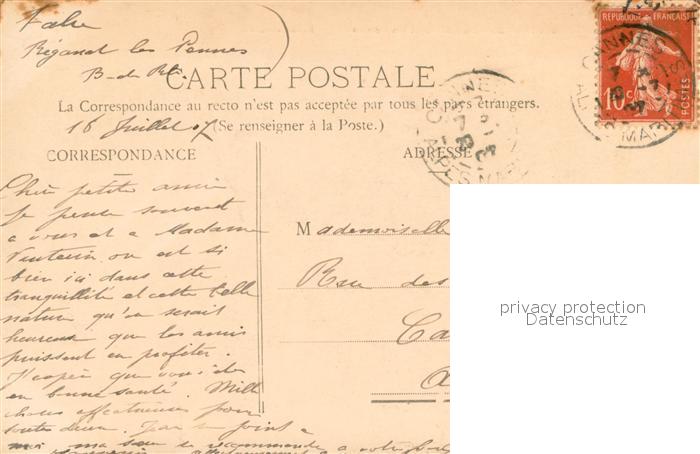 les Pennes
CARTE POSTALE
La Correspondance au recto n'est pas acceptée par tous les pays étrangers.
16 Juillet 07 (Se renseigner à la Poste.)
REPUBLIQUE FRANÇAISE
10 c
POSTES
CANNES
CORRESPONDANCE
ADRESSE
Chère petite amie
Je pense souvent
a vous et a Madame
on est si
bien ici dans cette
tranquillité et cette belle
nature qu'on serait
heureux que les amis
puissent en profiter.
J'espère que vous êtes
en bonne santé. Mille
choses affectueuses pour
toutes deux.
ma
Mademoiselle
Rue des
Ca
privacy protection
Datenschutz